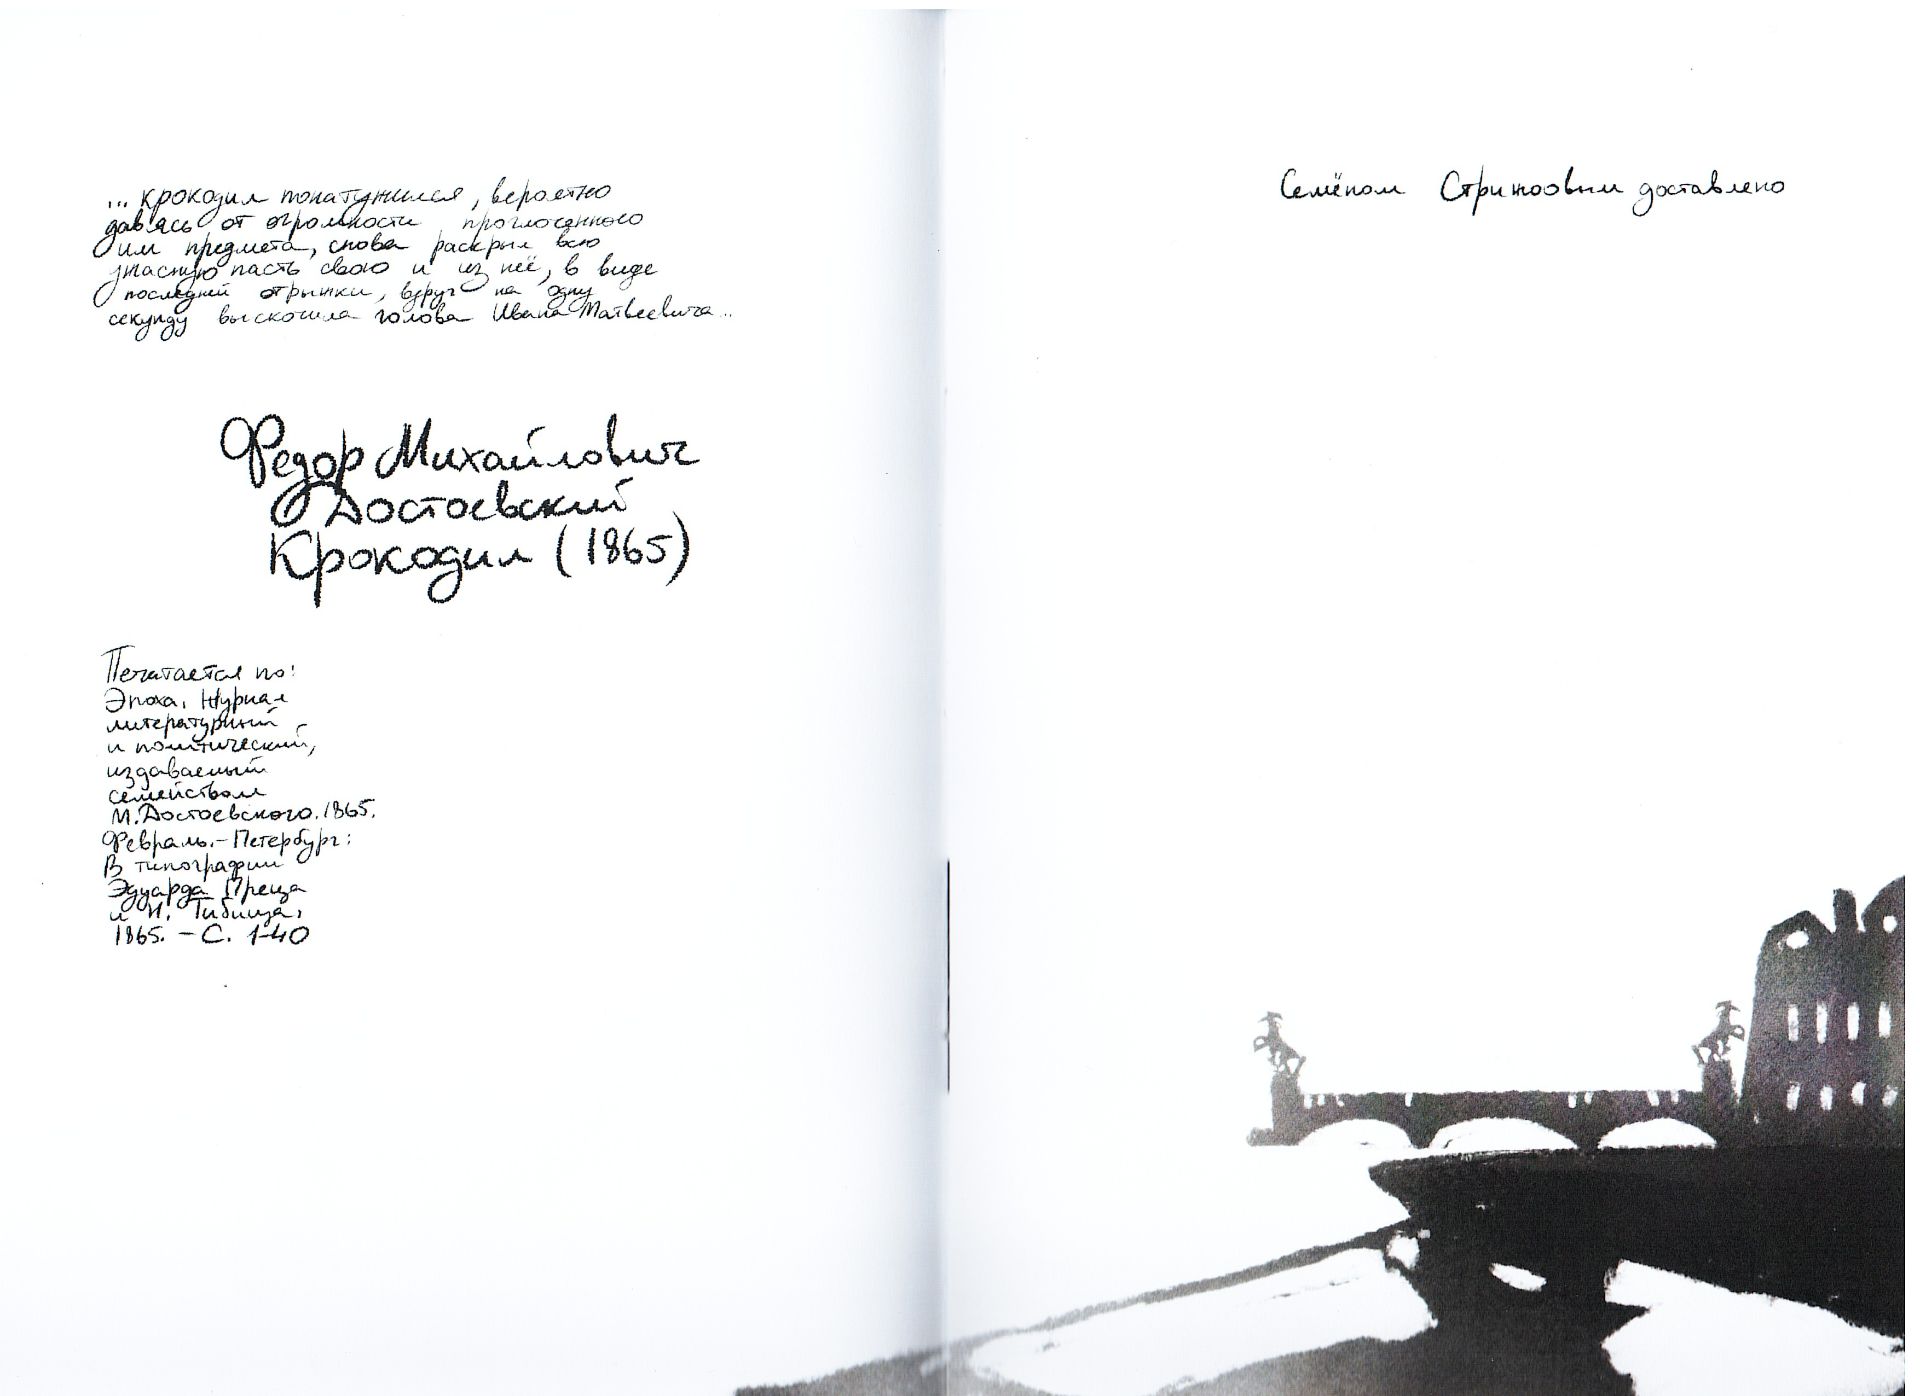 ... крокодил понатужился, вероятно
давясь от огромности проглоченного
им предмета, снова раскрыл всю
ужасную пасть свою и из неё, в виде
последней отрыжки, вдруг на одну
секунду выскочила голова Ивана Матвеевича...
Федор Михайлович
Достоевский
Крокодил (1865)
Печатается по:
Эпоха. Журнал
литературный
и политический,
издаваемый
семейством
М. Достоевского. 1865.
Февраль. - Петербург:
В типографии
Эдуарда Праца
и Н. Тиблица,
1865. - С. 1-40
Семёном доставлено